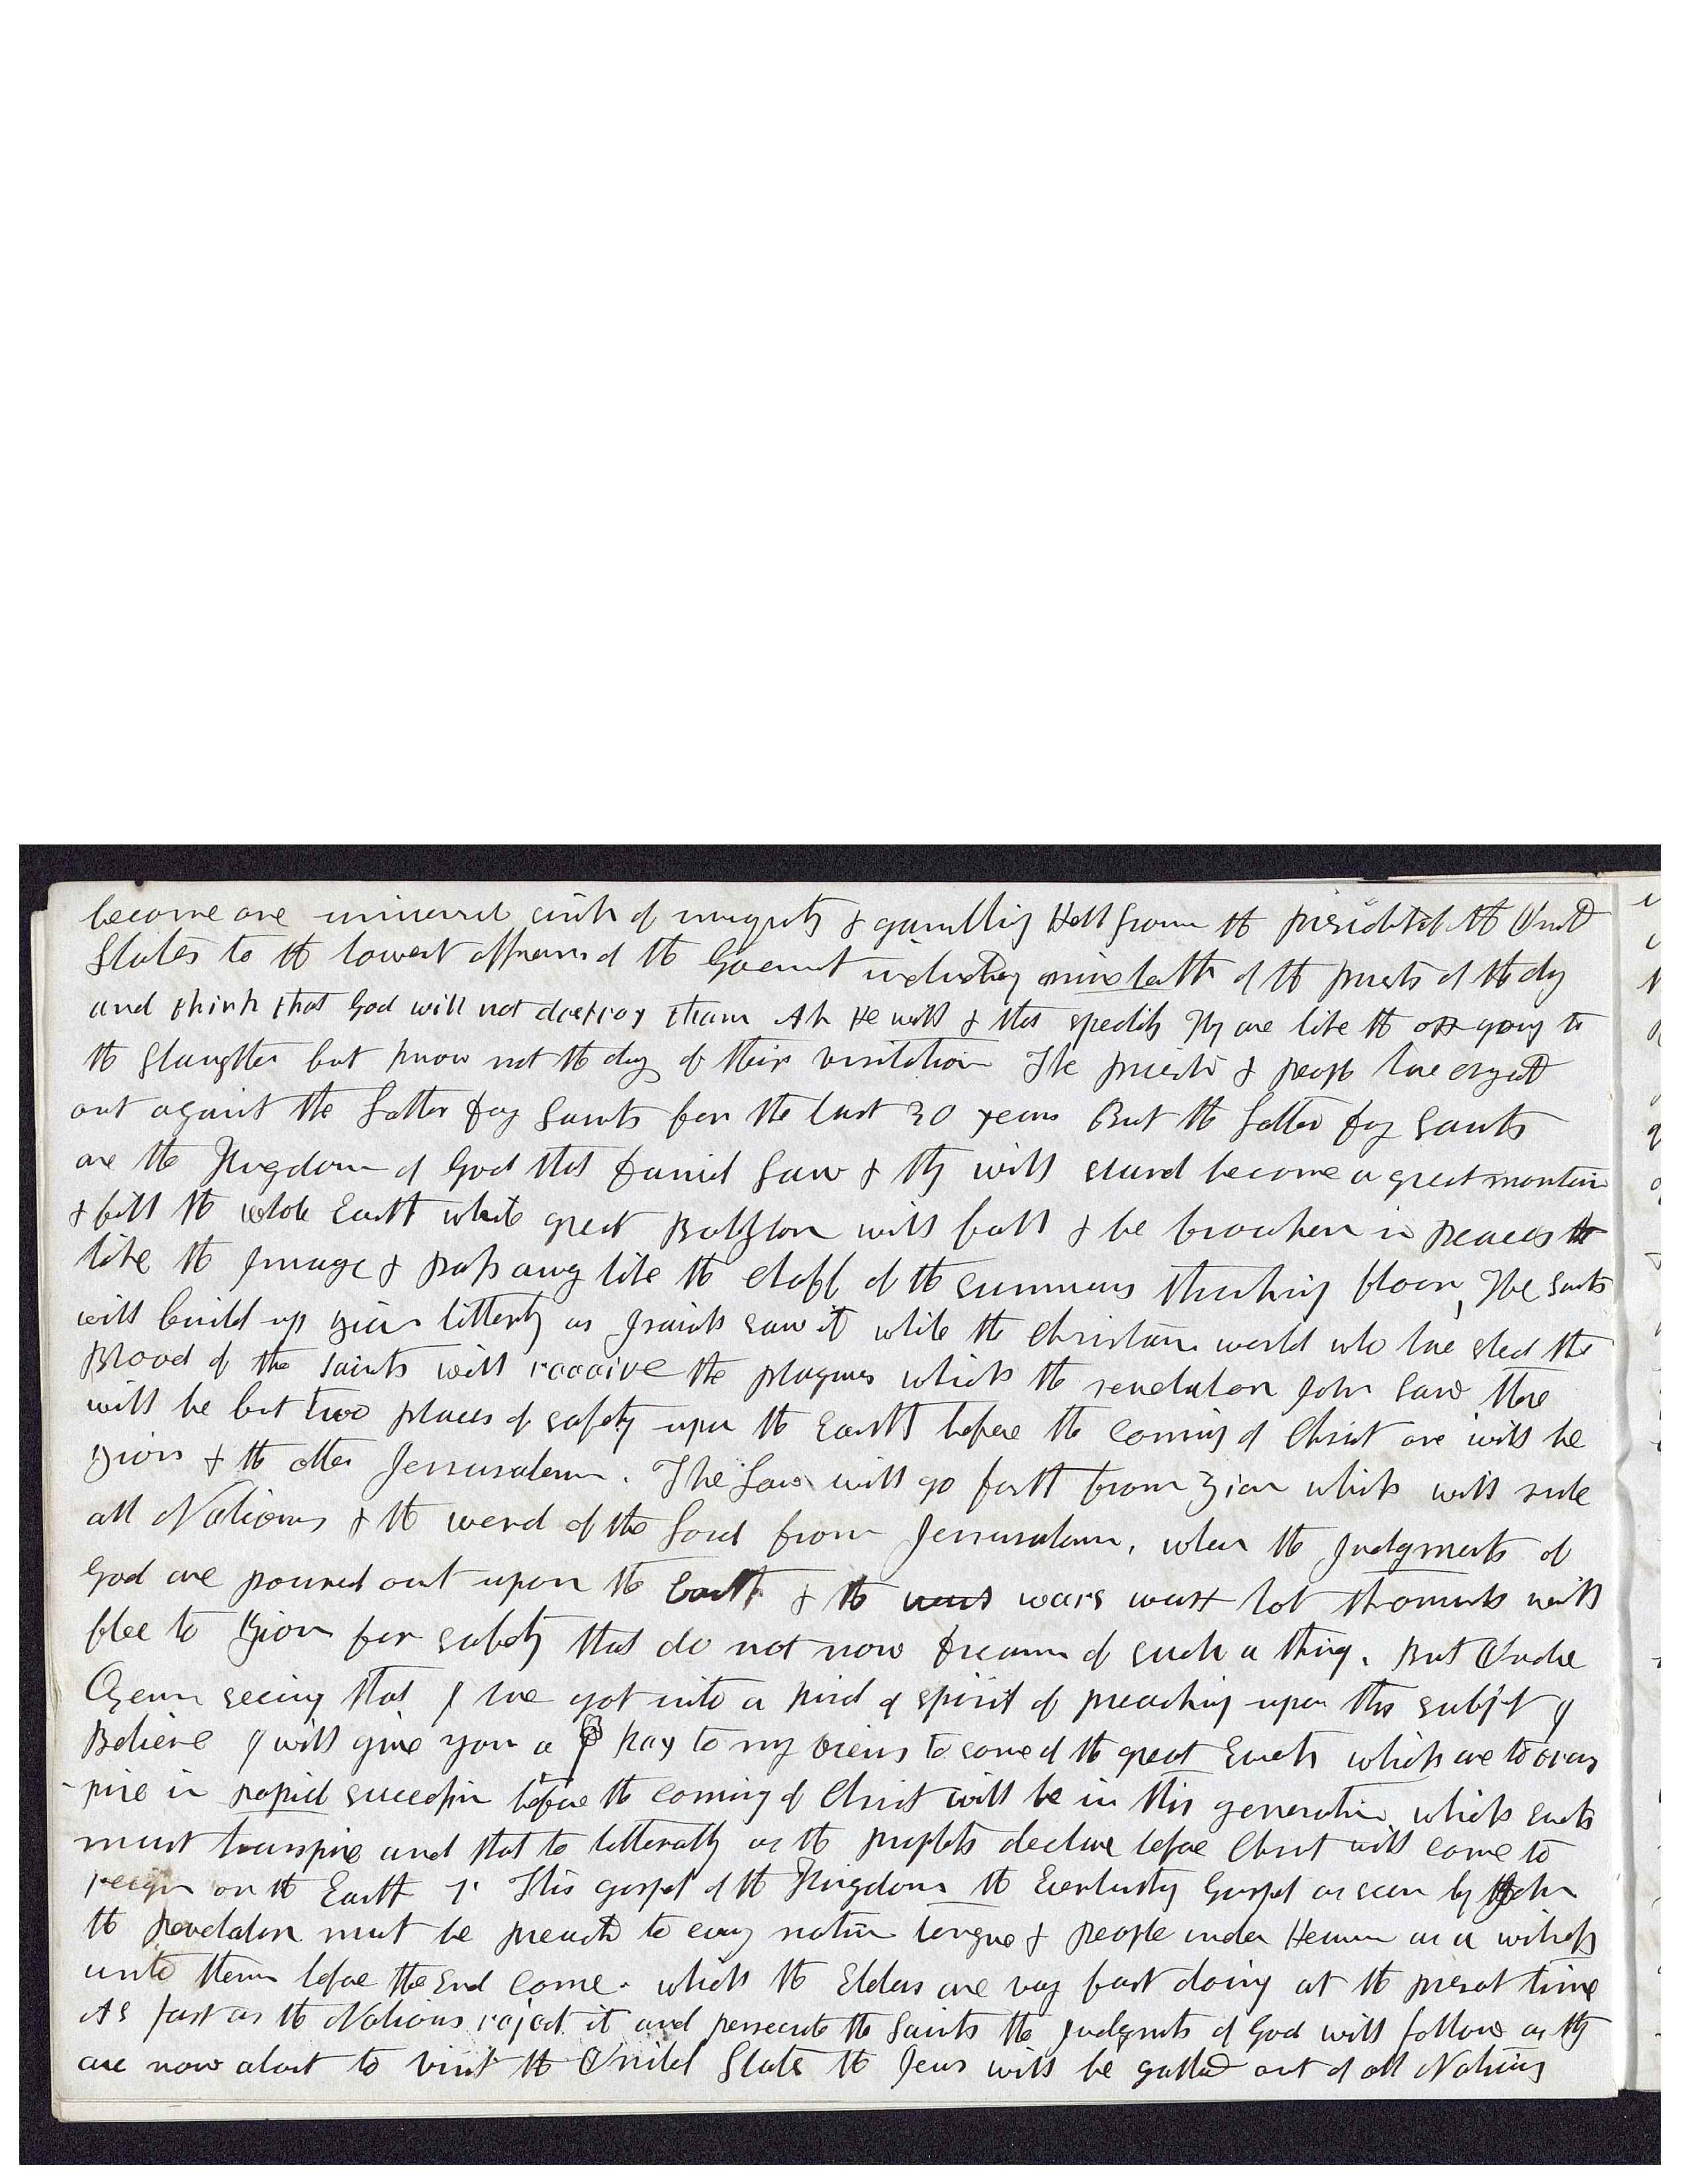 become one universal sink of iniquity & gambling Hell from the presidet of the Unitd
States to the lowest officers of the Goverment including nine tenths of the priests of the day
and think that God will not destroy them Ah He will & that speedily They are like the ox going to
the Slaughter but know not the day of their visitation The priests & people have cryed
out against the Latter day Saints for the last 30 years But the Latter day Saints
are the Kingdom of God that Daniel Saw & they will stand become a great mountain
& fill the whole Earth while great Babylon will fall & be broaken in peaces
like the Image & pass away like the Chaff of the summers thrashing floor, The Saints
will build up Zion litterly as Isaiah saw it while the Christian world who have shed the
Blood of the Saints will receive the plagues which the revelator John Saw there
will be but two places of safety upon the Earth before the coming of Christ one will be
Zion & the other Jerrusalem. The Law will go forth from Zion which will rule
all Nations & the word of the Lord from Jerrusalem, when the Judgments of
God are poured out upon the Earth & the wars wars wax hot thousands will
flee to Zion for safety that do not now dream of such a thing. But Uncle
Ozem seeing that I have got into a kind of spirit of preaching upon this subjet I
Believe I will give you a key to my views to some of the great Events which are to
pire in rapid succession before the coming of Christ will be in this generation which events
must transpire and that to litterally as the prophets declare before Christ will come to
reign on the Earth 1st This gospel of the Kingdom the Everlasting Gospel as seen by John
the Revelator must be preachd to every nation tongue & people under Heaven as a witness
unto them before the End come. which the Elders are vary fast doing at the present time
As fast as the Nations reject it and persecute the Saints the Judgments of God will follow as they
are now about to visit the United States the Jews will be gatherd out of all Nations